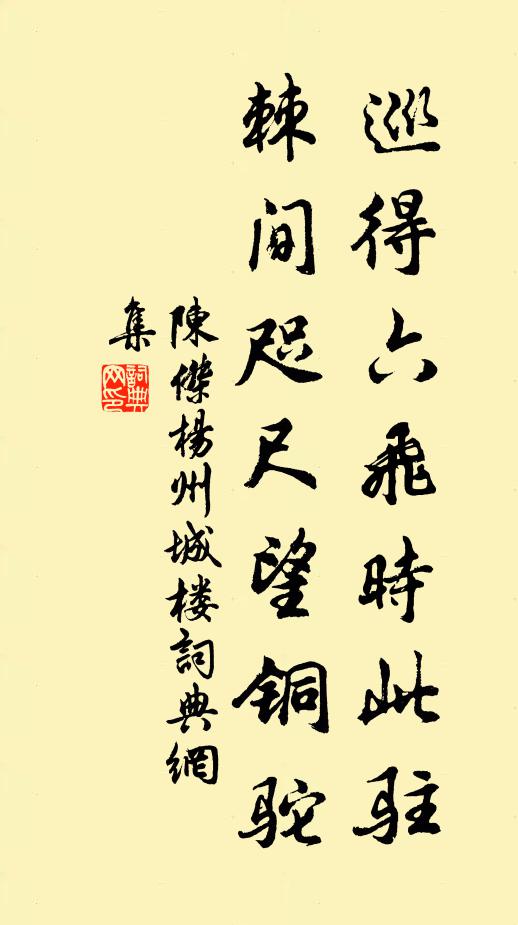 巡得六飛時此駐
棘間咫尺望铜驼
陳傑楊州城楼詞典網
集
詞典
网印